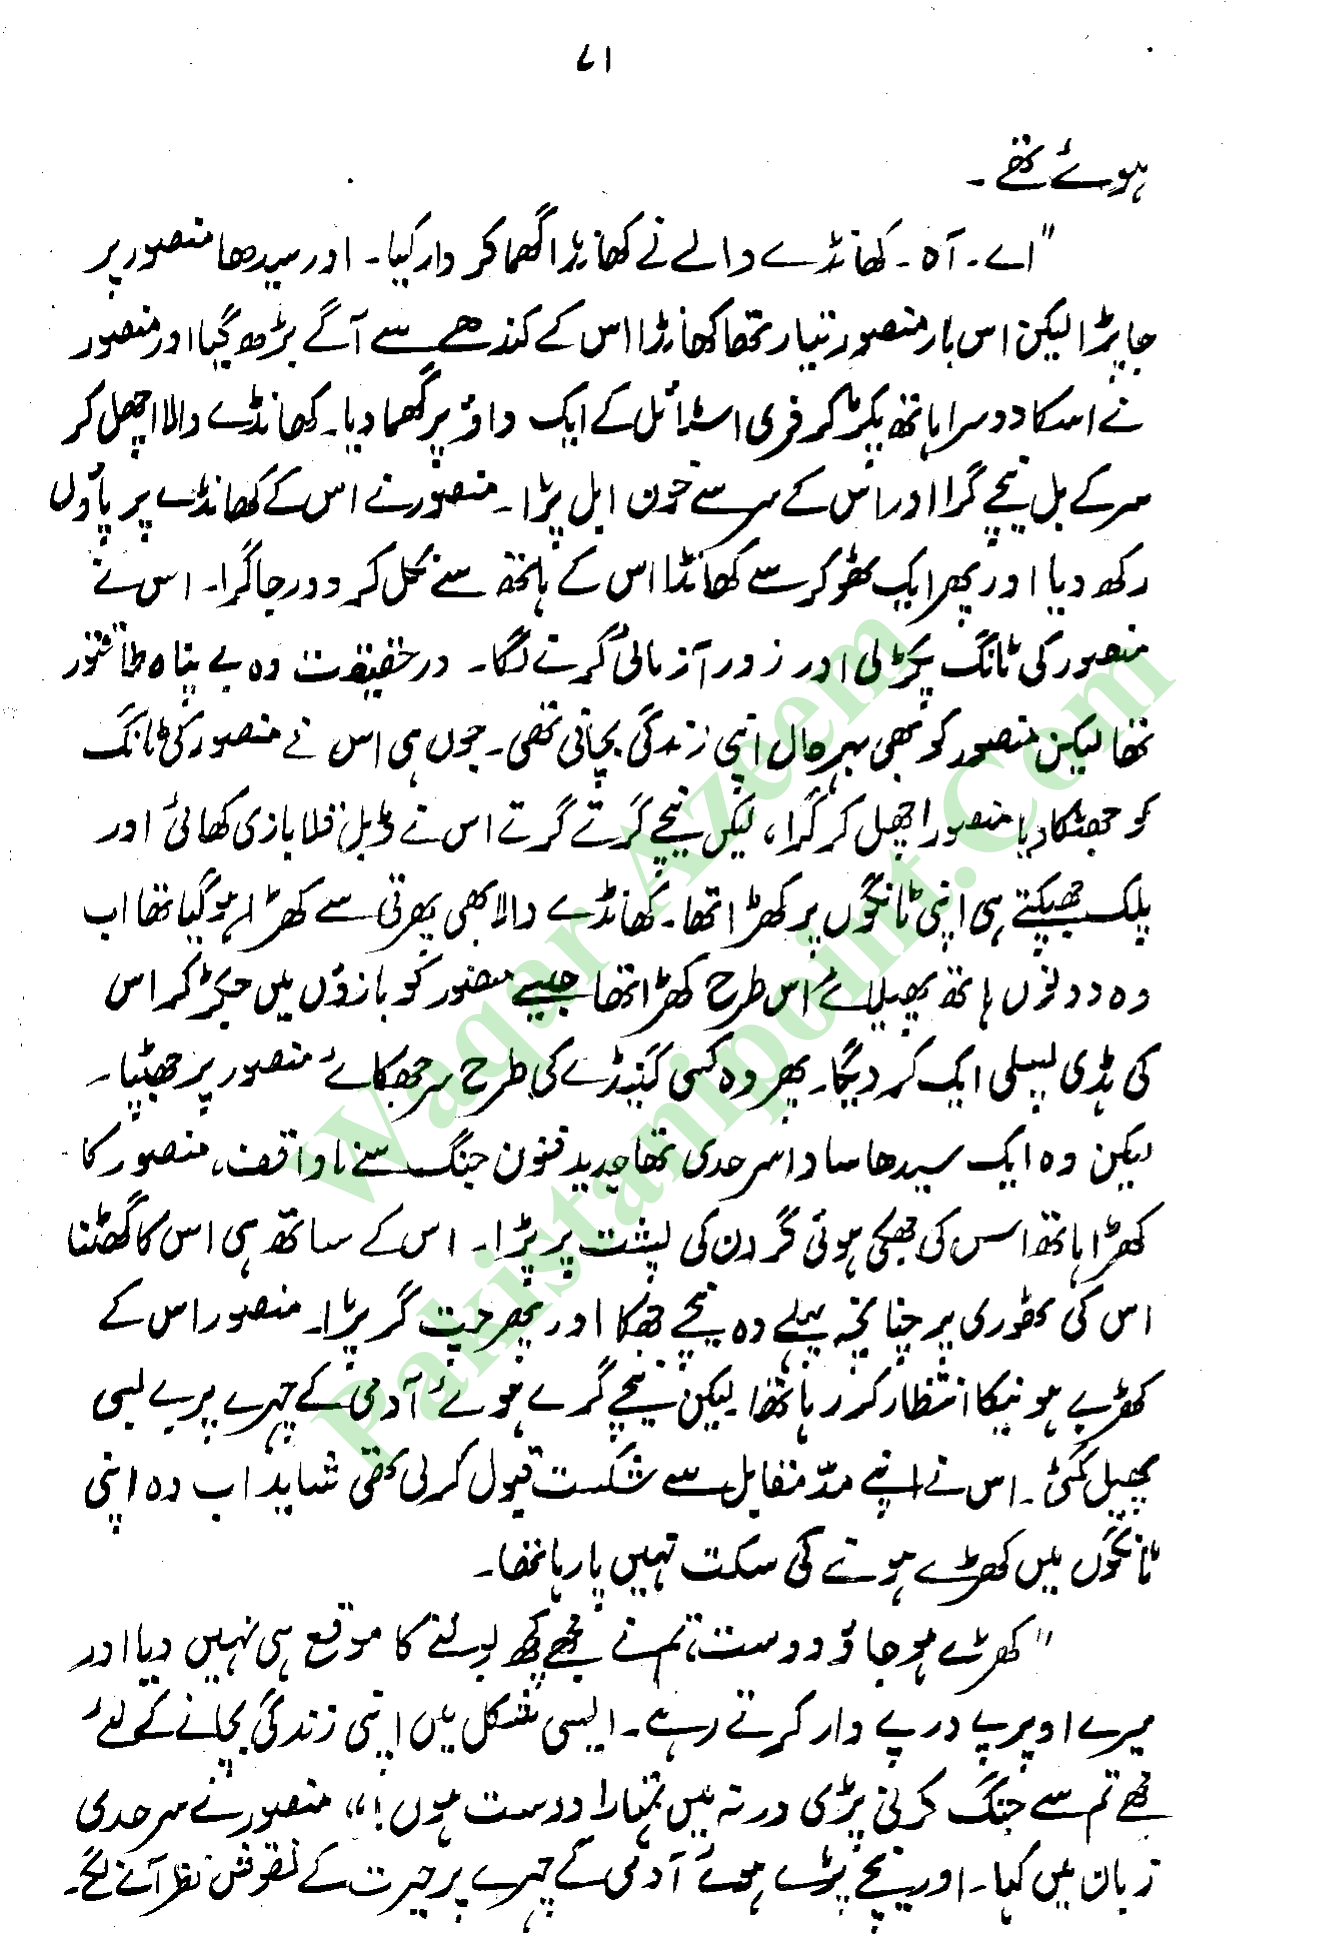 ۷۱
ہوئے تھے ۔
"اے ۔ آہ ۔ کھانڈے والے نے کھانڈا گھما کر وار کیا ۔ اور سیدھا منصور پر
جا پڑا لیکن اس بار منصور تیار تھا کھانڈا اس کے کندھے سے آگے بڑھ گیا اور منصور
نے اسکا دوسرا ہاتھ پکڑ کر فری اسٹائل کے ایک داؤ پر گھما دیا ۔ کھانڈے والا اچھل کر
سر کے بل نیچے گرا اور اس کے سر سے خون ابل پڑا ۔ منصور نے اس کے کھانڈے پر پاؤں
رکھ دیا اور پھر ایک ٹھوکر سے کھانڈا اس کے ہاتھ سے نکل کر دور جا گرا ۔ اس نے
منصور کی ٹانگ پکڑ لی اور زور آزمائی کرنے لگا ۔ درحقیقت وہ بے پناہ طاقتور
تھا لیکن منصور کو بھی بہرحال اپنی زندگی بچانی تھی ۔ جوں ہی اس نے منصور کی ٹانگ
کو جھٹکا دیا منصور اچھل کر گرا ، لیکن نیچے گرتے گرتے اس نے ڈبل قلابازی کھائی اور
پلک جھپکتے ہی اپنی ٹانگوں پر کھڑا تھا ۔ کھانڈے والا بھی پھرتی سے کھڑا ہو گیا تھا اب
وہ دونوں ہاتھ پھیلائے اس طرح کھڑا تھا جیسے منصور کو بازوؤں میں جکڑ کر اس
کی ہڈی پسلی ایک کر دیگا ۔ پھر وہ کسی گینڈے کی طرح سر جھکائے منصور پر جھپٹا ۔
لیکن وہ ایک سیدھا سادا سرحدی تھا جدید فنون جنگ سے ناواقف ، منصور کا
کھڑا ہاتھ اس کی جھکی ہوئی گردن کی پشت پر پڑا ۔ اس کے ساتھ ہی اس کا گھٹنا
اس کی ٹھوری پر چنانچہ پہلے وہ نیچے جھکا اور پھر چت گر پڑا ۔ منصور اس کے
کھڑے ہونیکا انتظار کر رہا تھا لیکن نیچے گرے ہوئے آدمی کے چہرے پر بے بسی
پھیل گئی ۔ اس نے اپنے مدّ مقابل سے شکست قبول کر لی تھی شاید اب وہ اپنی
ٹانگوں میں کھڑے ہونے کی سکت نہیں پا رہا تھا ۔
"کھڑے ہو جاؤ دوست ، تم نے مجھے کچھ بولنے کا موقع ہی نہیں دیا اور
میرے اوپر پے در پے وار کرتے رہے ۔ ایسی شکل میں اپنی زندگی بچانے کے لئے
مجھے تم سے جنگ کرنی پڑی ورنہ میں تمہارا دوست ہوں !" منصور نے سرحدی
زبان میں کہا ۔ اور نیچے پڑے ہوئے آدمی کے چہرے پر حیرت کے نقوش نظر آنے لگے ۔
Waqar Azeem
Pakistanipoint.Com